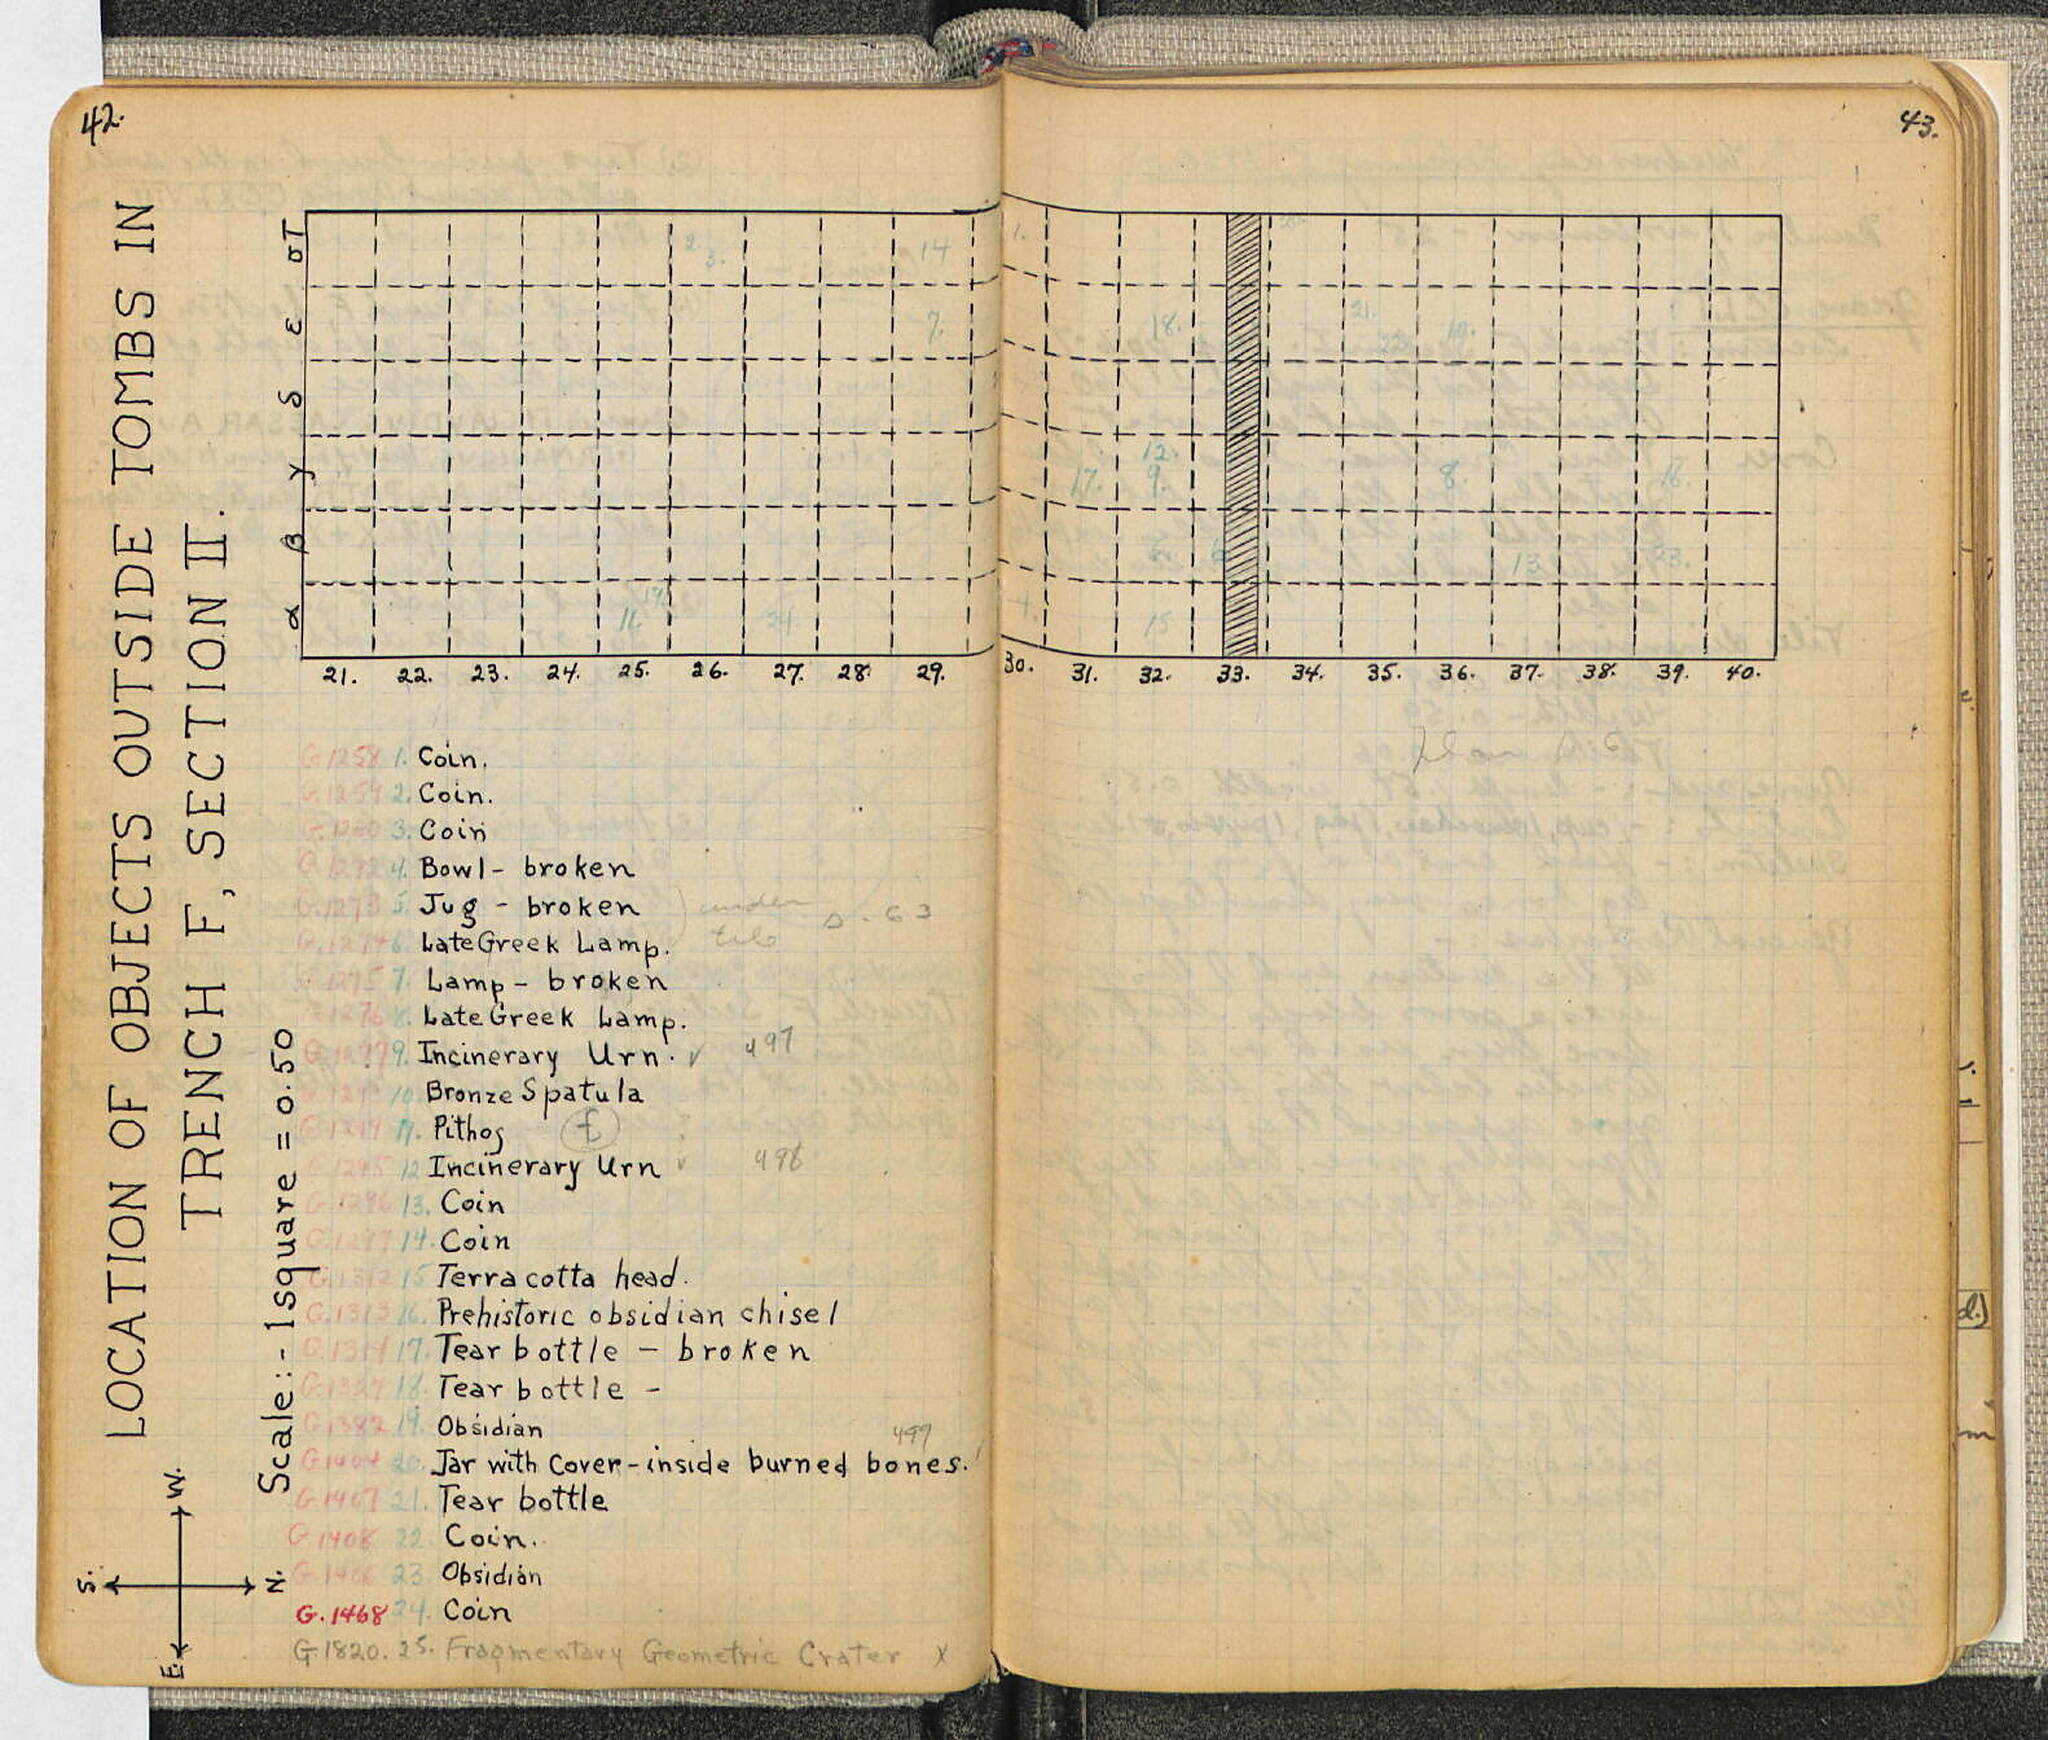 42.
43.
LOCATION OF OBJECTS OUTSIDE TOMBS IN
TRENCH F, SECTION II.
Scale:- 1 square = 0.50
S.
W.
N.
E.
στ
ε
δ
γ
β
α
1.
2.
3.
14
7.
18.
21.
10.
12.
17.
9.
8.
16.
13
23.
19
11.
24.
4.
15
21. 22. 23. 24. 25. 26. 27. 28. 29. 30. 31. 32. 33. 34. 35. 36. 37. 38. 39. 40.
G.1258 1. Coin.
G.1259 2. Coin.
G.1260 3. Coin
G.1292 4. Bowl - broken
G.1273 5. Jug - broken
under
tile
0.63
G.1274 6. Late Greek Lamp.
G.1275 7. Lamp - broken
G.1276 8. Late Greek Lamp.
G.1277 9. Incinerary Urn. ✓ 497
10. Bronze Spatula
G.1294 11. Pithos
G.1295 12 Incinerary Urn ✓ 498
G.1296 13. Coin
G.1297 14. Coin
G.1312 15 Terra cotta head.
G.1313 16. Prehistoric obsidian chisel
G.1314 17. Tear bottle - broken
G.1327 18. Tear bottle -
G.1382 19. Obsidian
499
G.1404 20. Jar with Cover - inside burned bones.
G.1407 21. Tear bottle
G.1408 22. Coin.
23 Obsidian
G.1468 24. Coin
G.1820. 25. Fragmentary Geometric Crater X